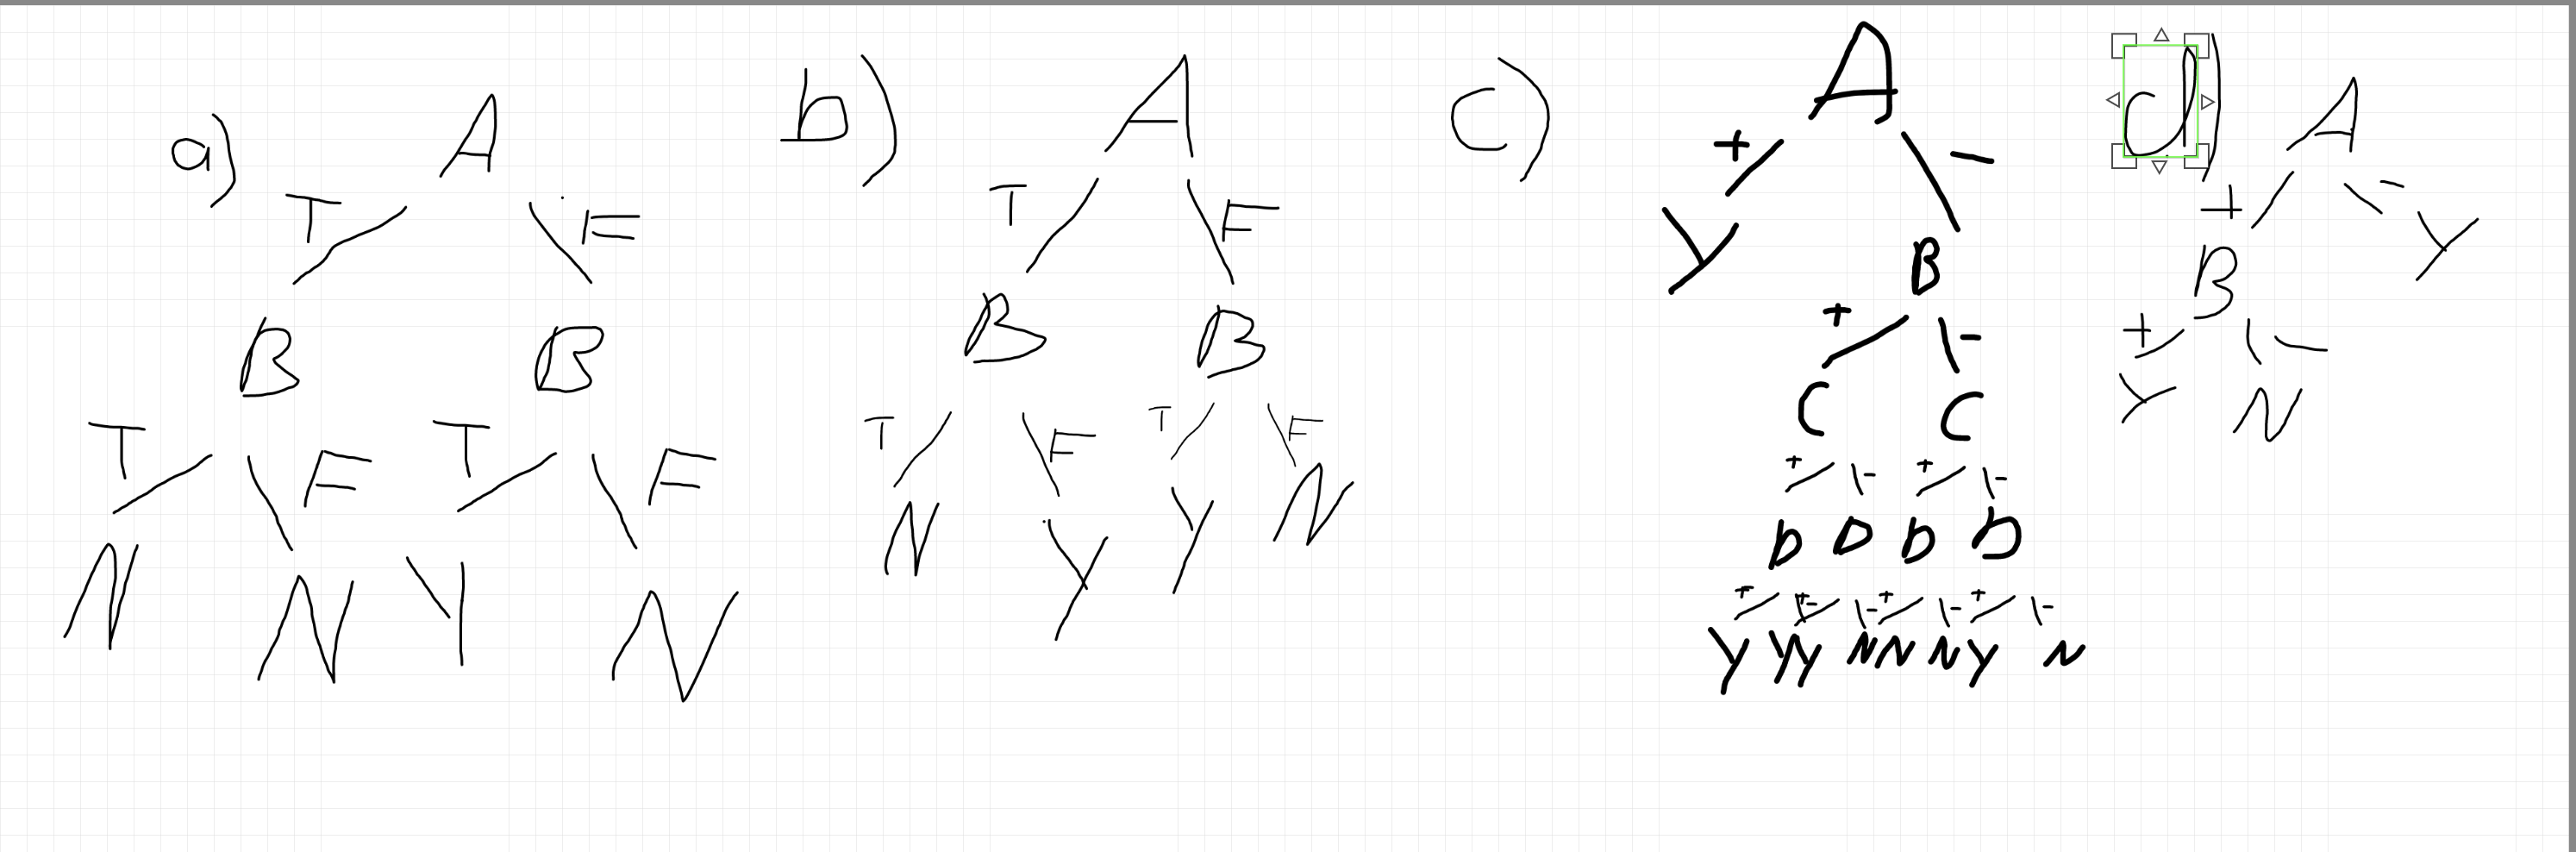 a) A
T F
B B
T F T F
N N Y N
b) A
T F
B B
T F T F
N Y Y N
c) A
+ -
Y B
+ -
C C
+ - + -
D D D D
+ - + - + - + -
Y Y Y N N N Y N
d) A
+ -
B Y
+ -
Y N